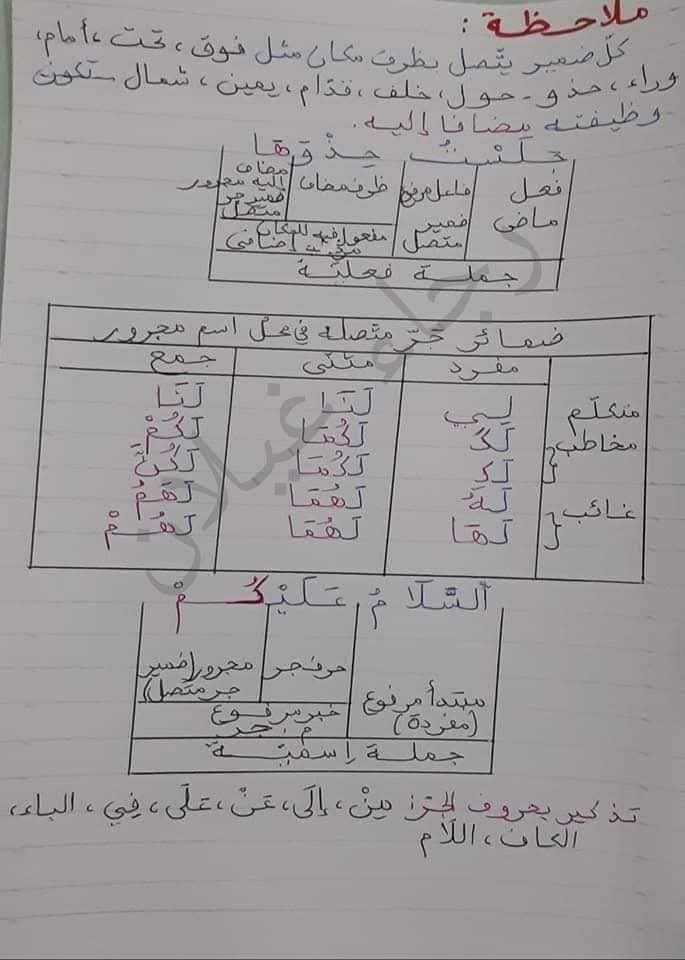 ملاحظة :
كلّ ضمير يتّصل بظرف مكان مثل فوق، تحت، أمام،
وراء، حذو - حول، خلف، قدّام، يمين، شمال ستكون
وظيفته مضافا إليه.
جَلَسْتُ حِذْوَهَا
فعل ماضي
فاعل مرفوع ضمير متصل
ظرف مضاف
مضاف إليه مجرور ضمير جر متصل
مفعول فيه للمكان إضافي
جملة فعليّة
ضمائر جَرّ متصلة في محل اسم مجرور
مفرد مثنى جمع
متكلّم لِي لَنَا لَنَا
مخاطب لَكَ لَكُمَا لَكُمْ
لَكِ لَكُمَا لَكُنَّ
غائب لَهُ لَهُمَا لَهُمْ
لَهَا لَهُمَا لَهُمْ
اَلسَّلَامُ عَلَيْكُمْ
مبتدأ مرفوع (مفردة)
حرف جر
مجرور (ضمير جر متصل)
خبر مرفوع
م. جر
جملة إسميّة
تذكير بحروف الجرّ: مِنْ، إلَى، عَنْ، عَلَى، فِي، الباء،
الكاف، اللّام
رجاء غيلان